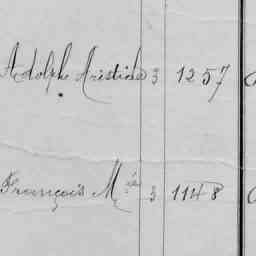 Adolph Aristide 3 1257
François Mie 3 1148